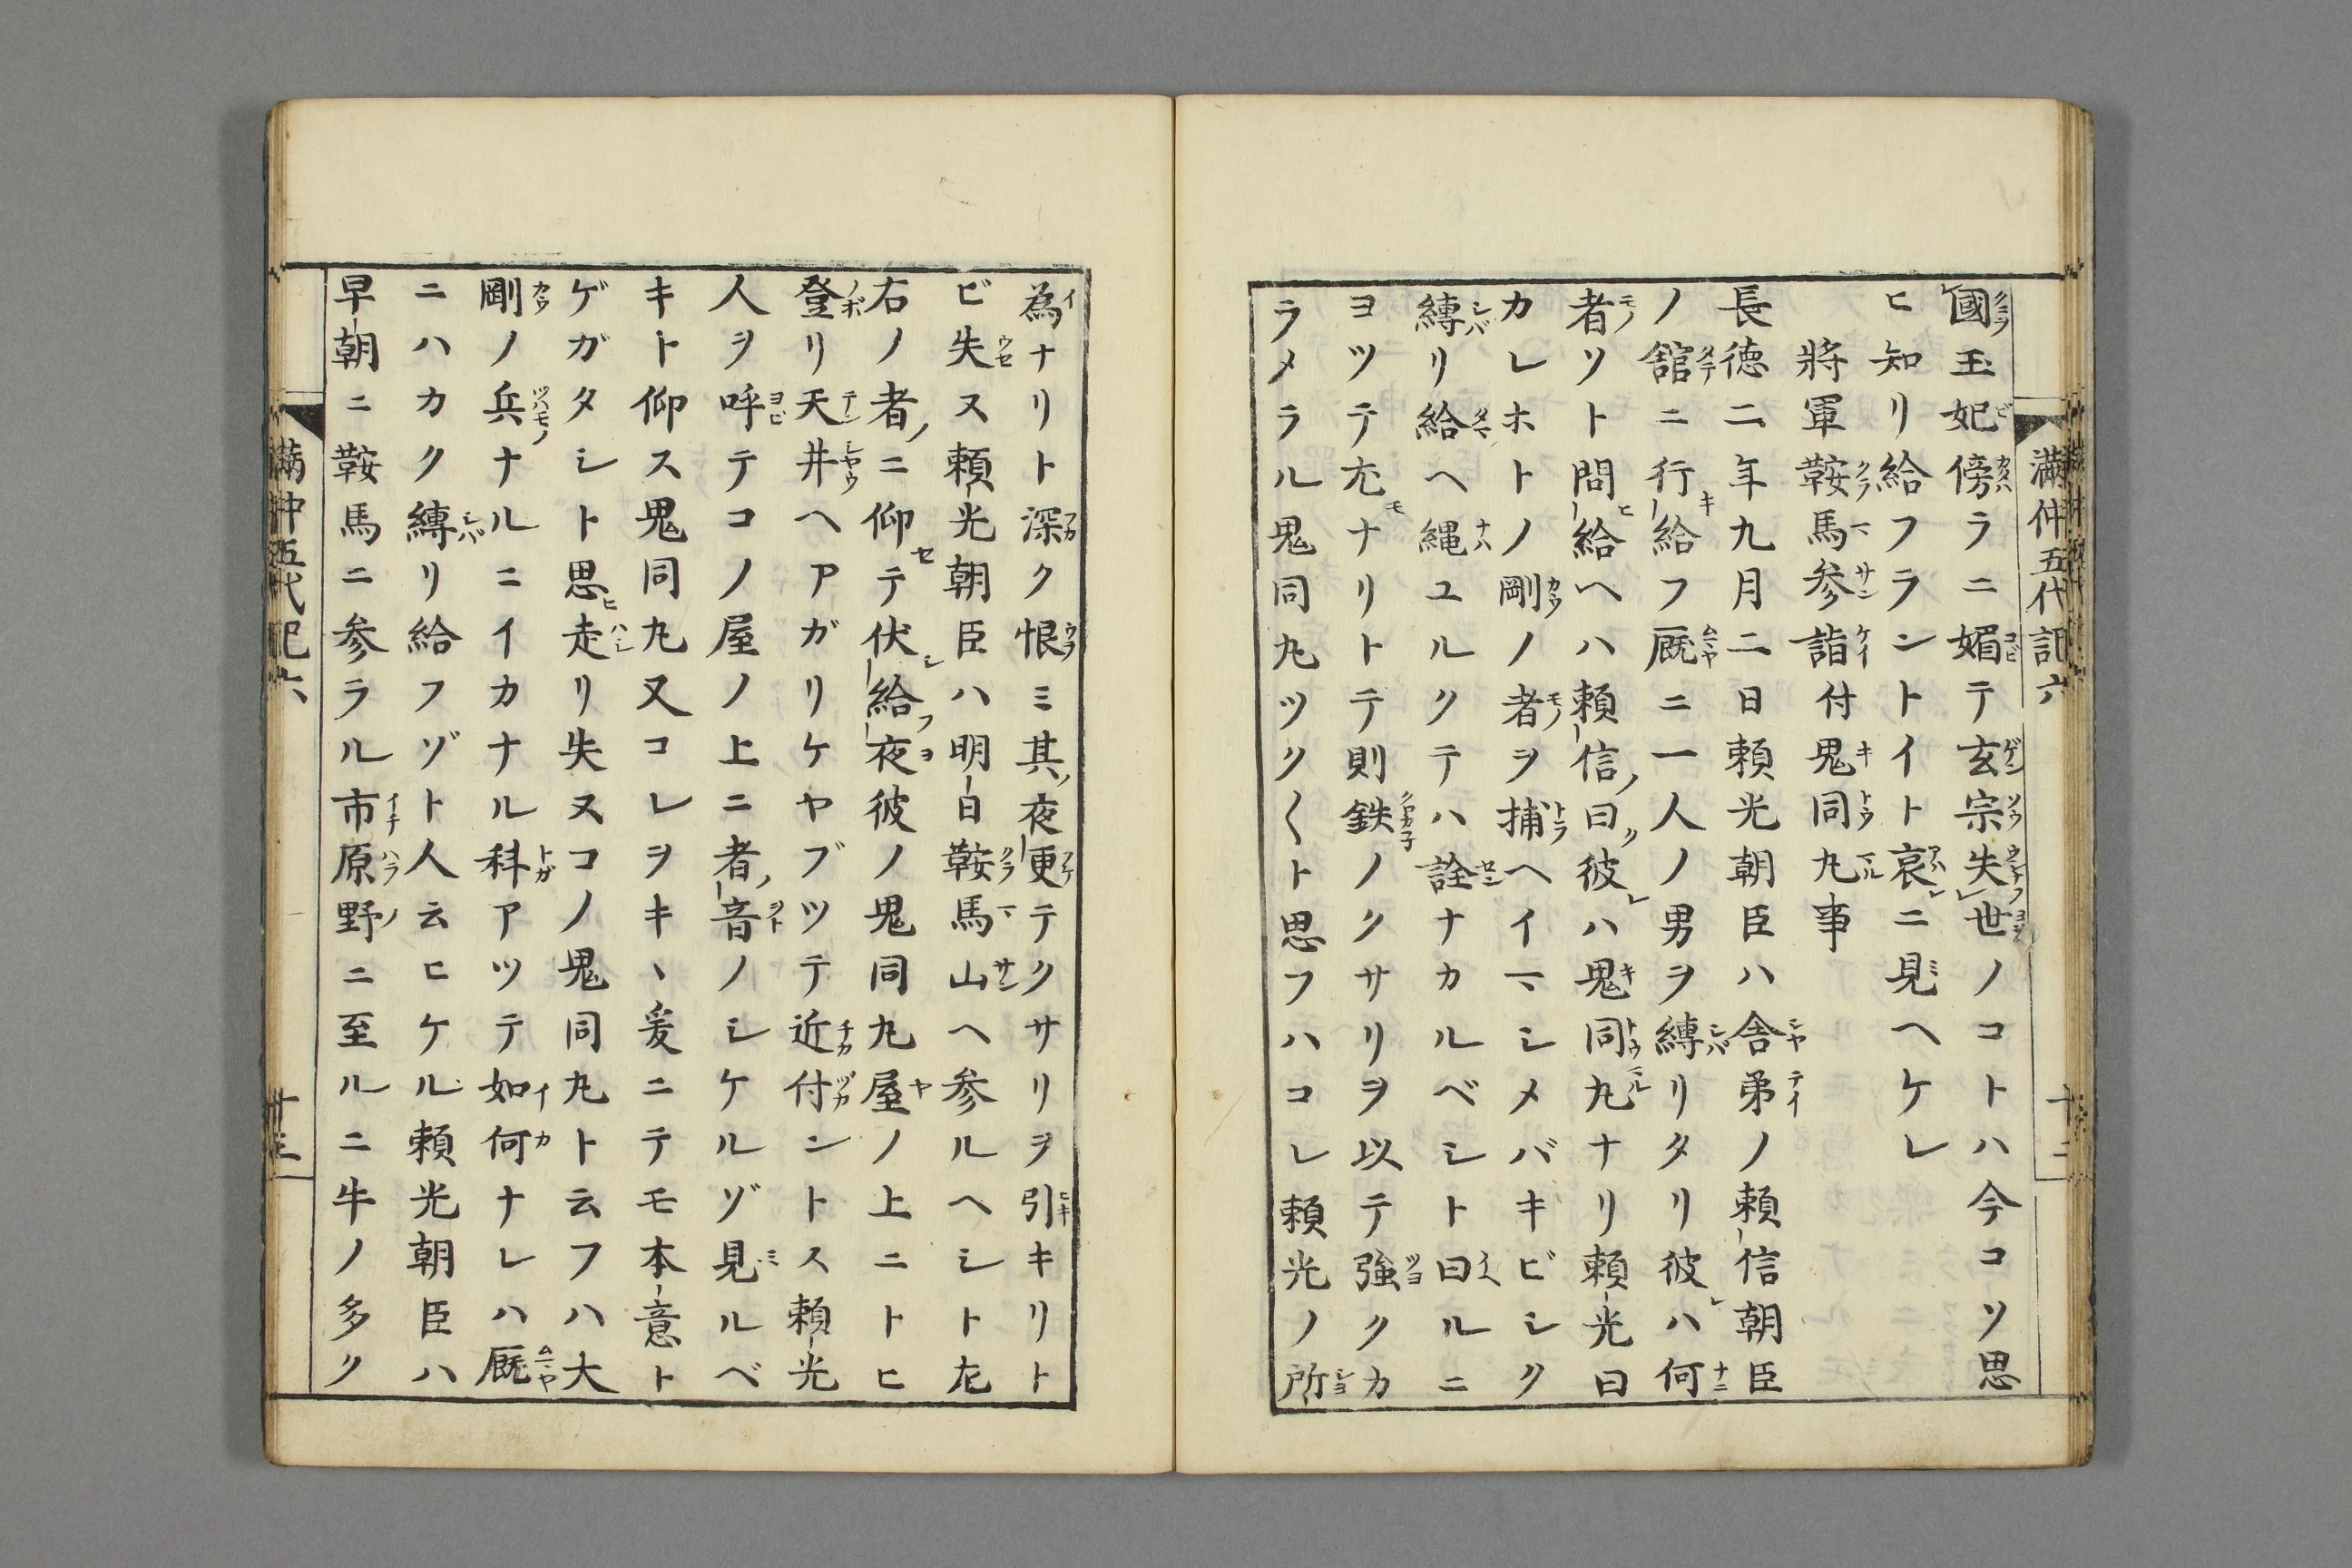 満仲五代記六　十二
國玉妃傍ラニ媚テ玄宗失世ノコトハ今コソ思
ヒ知リ給フラントイト哀ニ見ヘケレ
將軍鞍馬参詣付鬼同丸事
長徳二年九月二日頼光朝臣ハ舎弟ノ頼信朝臣
ノ舘ニ行給フ厩ニ一人ノ男ヲ縛リタリ彼ハ何
者ソト問給ヘハ頼信曰彼ハ鬼同丸ナリ頼光曰
カレホトノ剛ノ者ヲ捕ヘイマシメバキビシク
縛リ給ヘ縄ユルクテハ詮ナカルベシト曰ルニ
ヨツテ尤ナリトテ則鉄ノクサリヲ以テ強クカ
ラメラル鬼同丸ツク〱ト思フハコレ頼光ノ所
為ナリト深ク恨ミ其夜更テクサリヲ引キリト
ビ失ス頼光朝臣ハ明日鞍馬山ヘ参ルヘシト左
右ノ者ニ仰テ伏給夜彼ノ鬼同丸屋ノ上ニトヒ
登リ天井ヘアガリケヤブツテ近付ントス頼光
人ヲ呼テコノ屋ノ上ニ者音ノシケルゾ見ルベ
キト仰ス鬼同丸又コレヲキヽ爰ニテモ本意ト
ゲガタシト思走リ失ヌコノ鬼同丸ト云フハ大
剛ノ兵ナルニイカナル科アツテ如何ナレハ厩
ニハカク縛リ給フゾト人云ヒケル頼光朝臣ハ
早朝ニ鞍馬ニ参ラル市原野ニ至ルニ牛ノ多ク
満仲五代記六　十三